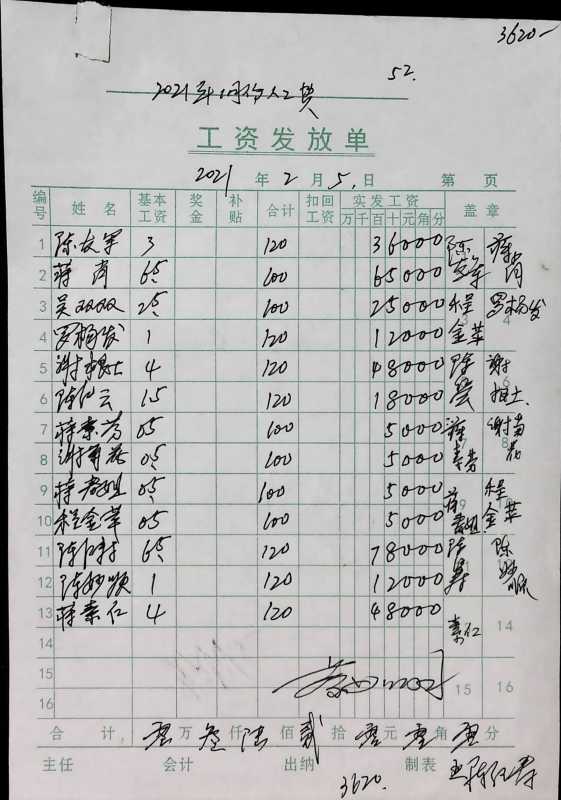 3620-
52.
2021年1月份人工费
工资发放单
2021年2月5日 第 页
编号 姓名 基本工资 奖金 补贴 合计 扣回工资 实发工资 万千百十元角分 盖章
1 陈友军 3 120 36000 陈友军
2 蒋 65 100 65000
3 吴双双 25 100 25000 程金苹 罗杨发
4 罗杨发 1 120 12000
5 谢根土 4 120 48000 谢根土
6 陈仙云 15 120 18000 陈
7 蒋素芳 05 100 5000 素芳 谢菊花
8 谢菊花 05 100 5000
9 蒋姐 05 100 5000 程金苹
10 程金苹 05 100 5000
11 陈 65 120 78000 陈 陈
12 陈 1 120 12000
13 蒋素仁 4 120 48000 素仁
14 14
15 15 16
16
合计 零万叁仟陆佰贰拾零元零角零分
主任 会计 出纳 制表
3620.